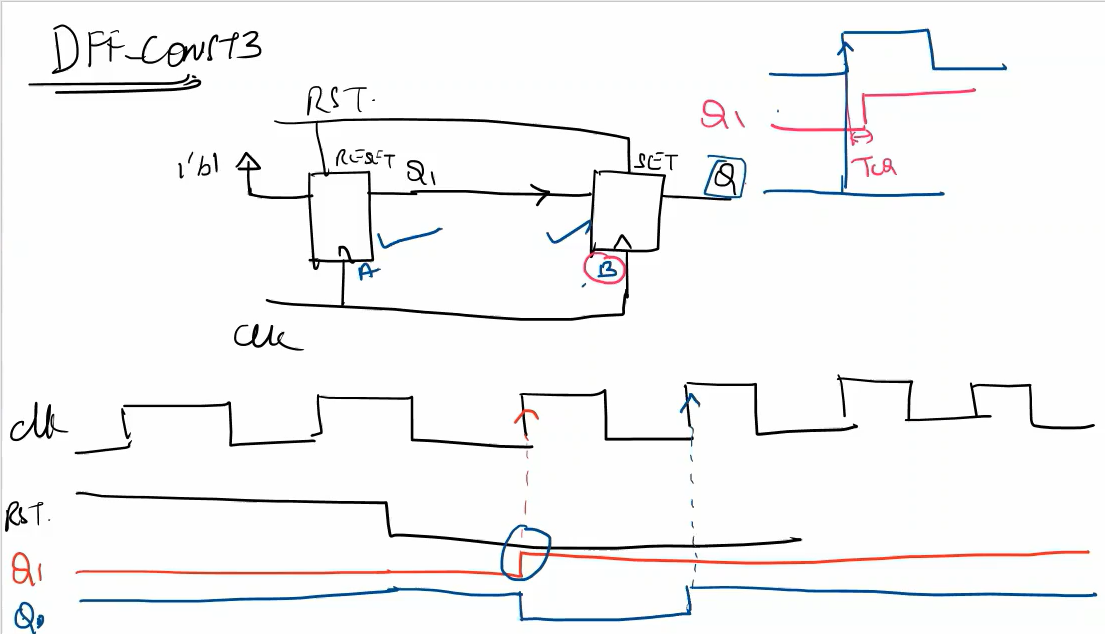 DFF_CONST3
RST.
1'b1
RESET
Q1
SET
Q
A
B
Clk
Q1
TCQ
Clk
RST.
Q1
Q